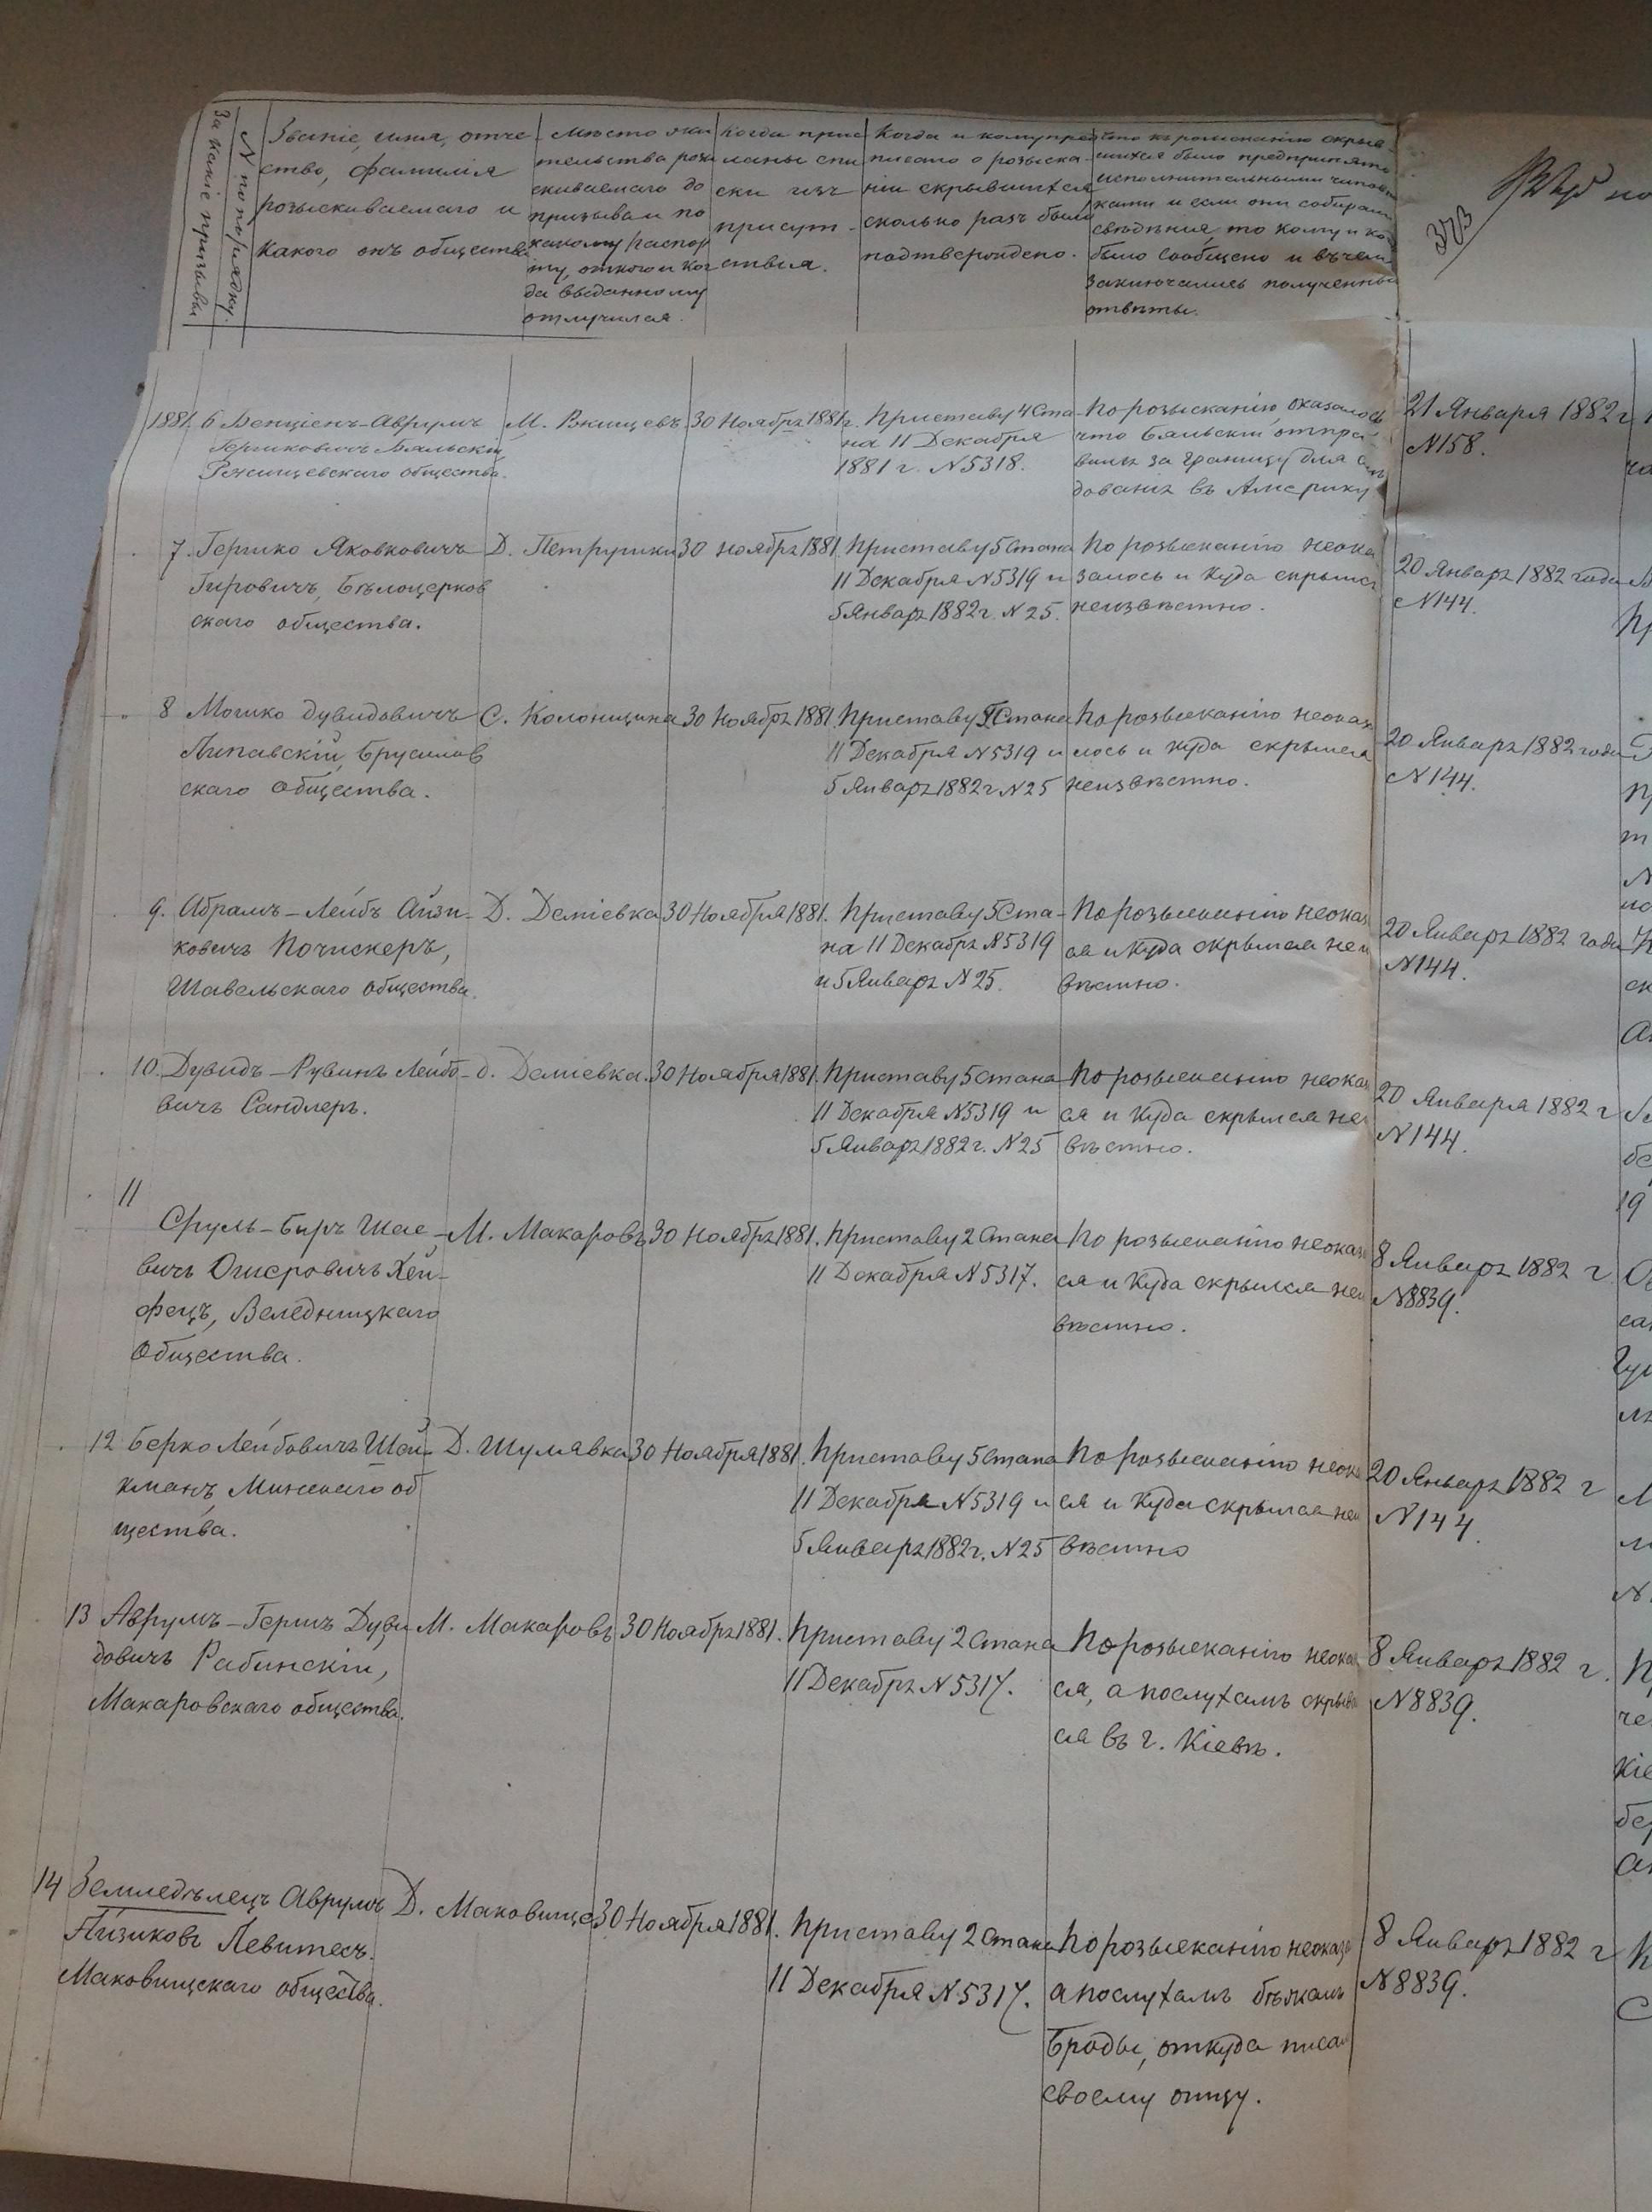 За какіе призывы
№ по порядку.
Званіе, имя, отче
ство, фамилія
розыскиваемаго и
какого онъ общества
Мѣсто жи
тельства розы
скиваемаго до
призыва и по
какому паспор
ту, откого и ког
да выданному
отлучился.
Когда прис
ланы спи
ски изъ
присут
ствія.
Когда и кому пред
писано о розыска
ніи скрывшихся
сколько разъ было
подтверждено.
Что къ розысканію скрыв
шихся было предпринято
исполнительными чинов
никами и если они собирали
свѣдѣнія, то кому и ко
было сообщено и въ чем
заключались полученны
отвѣты.
373
1881. 6 Бенціенъ-Аврумъ
Гершковичъ Бяльскій
Ржищевскаго общества.
М. Ржищевъ
30 Ноября 1881 г.
Приставу 4 Ста
на 11 Декабря
1881 г. №5318.
По розысканію оказалось
что Бяльскій отпра
вился за границу для слѣ
дованія въ Америку
21 Января 1882 г
№158.
7. Гершко Яковковичъ
Гировичъ, Бѣлоцерков
скаго общества.
Д. Петрушки
30 Ноября 1881.
Приставу 5 Стана
11 Декабря №5319 и
5 Января 1882 г. №25.
По розысканію неока
залось и куда скрылся
неизвѣстно.
20 Января 1882 года
№144.
8 Мошко Дувидовичъ
Липавскій, Брусилов
скаго общества.
С. Колонщина
30 Ноября 1881.
Приставу 5 Стана
11 Декабря №5319 и
5 Января 1882 г №25
По розысканію неоказ
лось и куда скрылся
неизвѣстно.
20 Января 1882 года
№144.
9. Абрамъ-Лейбъ Айзи-
ковичъ Почискеръ,
Шавельскаго общества.
Д. Деміевка
30 Ноября 1881.
Приставу 5 Ста-
на 11 Декабря №5319
и 5 Января №25.
По розысканію неоказ
ся и куда скрылся неи
вѣстно.
20 Января 1882 года
№144.
10. Дувидъ-Рувинъ Лейбо-
вичъ Сандлеръ.
д. Деміевка.
30 Ноября 1881.
Приставу 5 Стана
11 Декабря №5319 и
5 Января 1882 г. №25
По розысканію неоказ
ся и куда скрылся не
вѣстно.
20 Января 1882 г
№144.
11
Сруль-Беръ Шае
вичъ Ошеровичъ Хей-
фецъ, Веледницкаго
Общества.
М. Макаровъ
30 Ноября 1881.
Приставу 2 Стана
11 Декабря №5317.
По розысканію неоказ
ся и куда скрылся неи
вѣстно.
8 Января 1882 г.
№8839.
12 Берко Лейбовичъ Шей
хманъ, Минскаго об
щества.
Д. Шулявка
30 Ноября 1881.
Приставу 5 Стана
11 Декабря №5319 и
5 Января 1882 г. №25
По розысканію неока
ся и куда скрылся неи
вѣстно
20 Января 1882 г
№144.
13 Аврумъ-Гершъ Дуви
довичъ Рабинскій,
Макаровскаго общества.
М. Макаровъ
30 Ноября 1881.
Приставу 2 Стана
11 Декабря №5317.
По розысканію неоказ
ся, а послухамъ скрыва
ся въ г. Кіевѣ.
8 Января 1882 г.
№8839.
14 Земледѣлецъ Аврумъ
Айзиковъ Левитесъ.
Маковищскаго общества.
Д. Маковище
30 Ноября 1881.
Приставу 2 Стана
11 Декабря №5317.
По розысканію неоказа
а послухамъ бѣжалъ
Броды, откуда писал
своему отцу.
8 Января 1882 г
№8839.